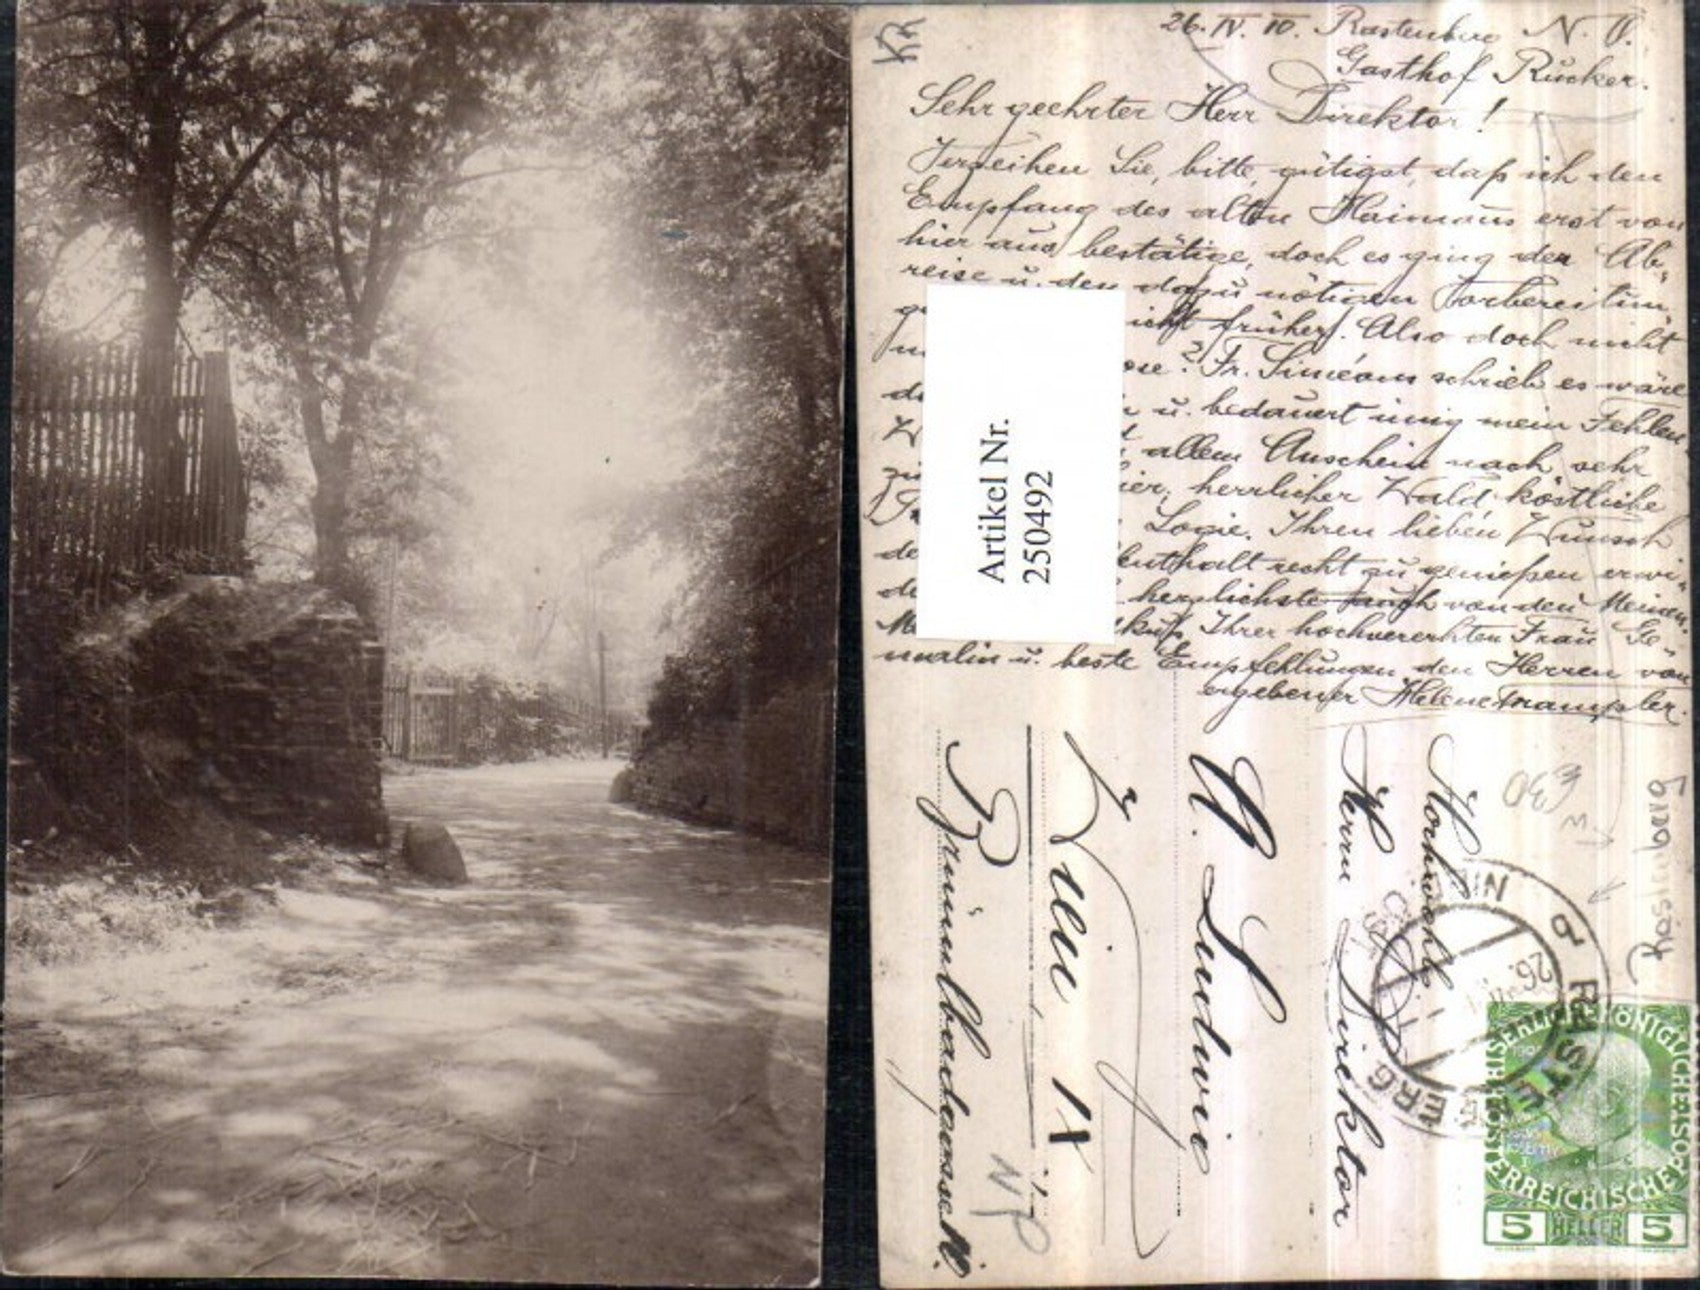 26. IV. 10. Rastenberg N. Ö.
Gasthof Rücker.
Sehr geehrter Herr Direktor!
Verzeihen Sie, bitte, gütigst, daß ich den
Empfang des alten erst von
hier aus bestätige, doch es ging der Ab-
reise u. den dazu nötigen Vorbereitun-
früher. Also doch nicht
? Fr. Siméons schrieb es wäre
u. bedauert innig mein Fehlen.
allem Anschein nach sehr
hier, herrlicher Wald köstliche
Logie. Ihren lieben Wunsch
recht zu genießen erwi-
herzlichste auch von den Meinen.
Ihrer hochverehrten Frau Ge-
malin u. beste Empfehlungen den Herren von
ergebener Helene Trampler.
Artikel Nr.
250492
Herrn Direktor
A. Ludwig
Wien IX
NÖ
Rastenberg
26.
KAISERLICHE KÖNIGLICHE
ÖSTERREICHISCHE POST
5 HELLER 5